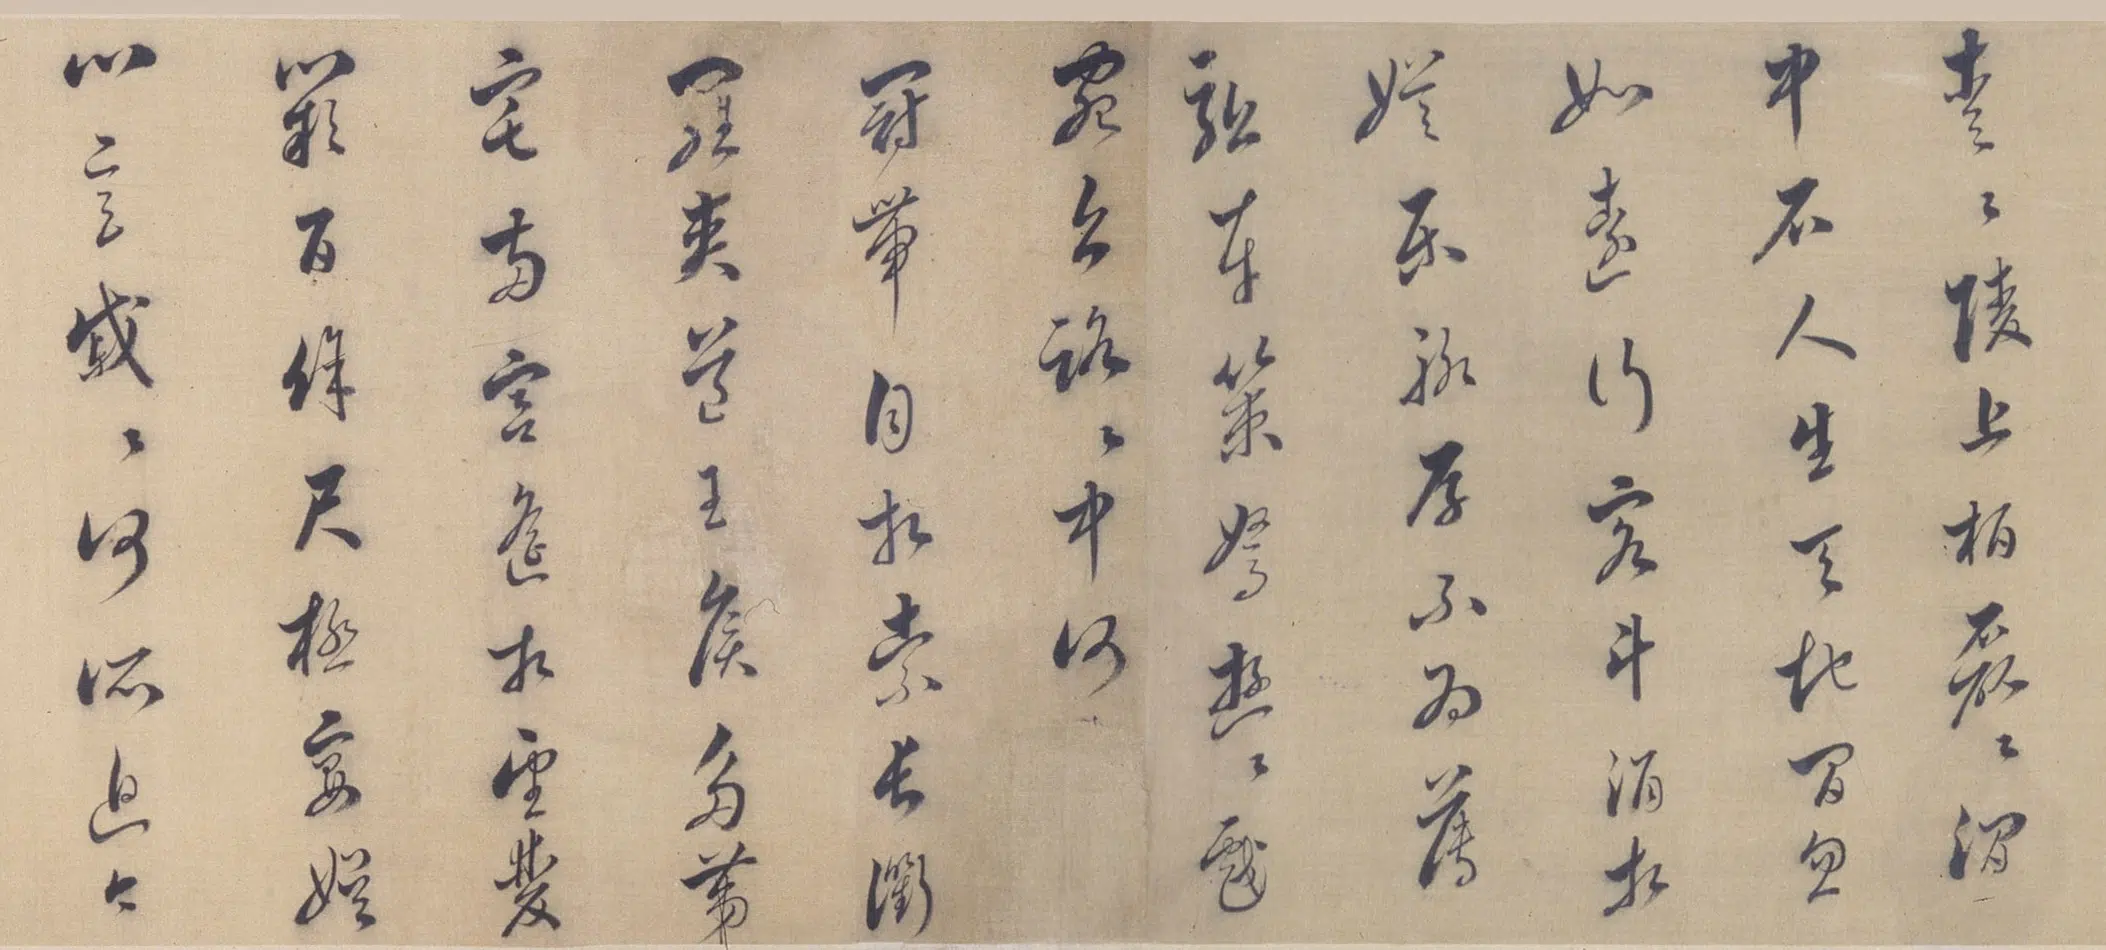 青〻陵上柏磊〻澗
中石人生天地間忽
如遠行客斗酒相
娛樂聊厚不為薄
驅車策駑遊〻戲
宛與洛〻中何
冠帶自相索長衢
羅夾巷王侯多第
宅兩宮遙相望雙
闕百餘尺極宴娛
心意戚〻何所迫〻